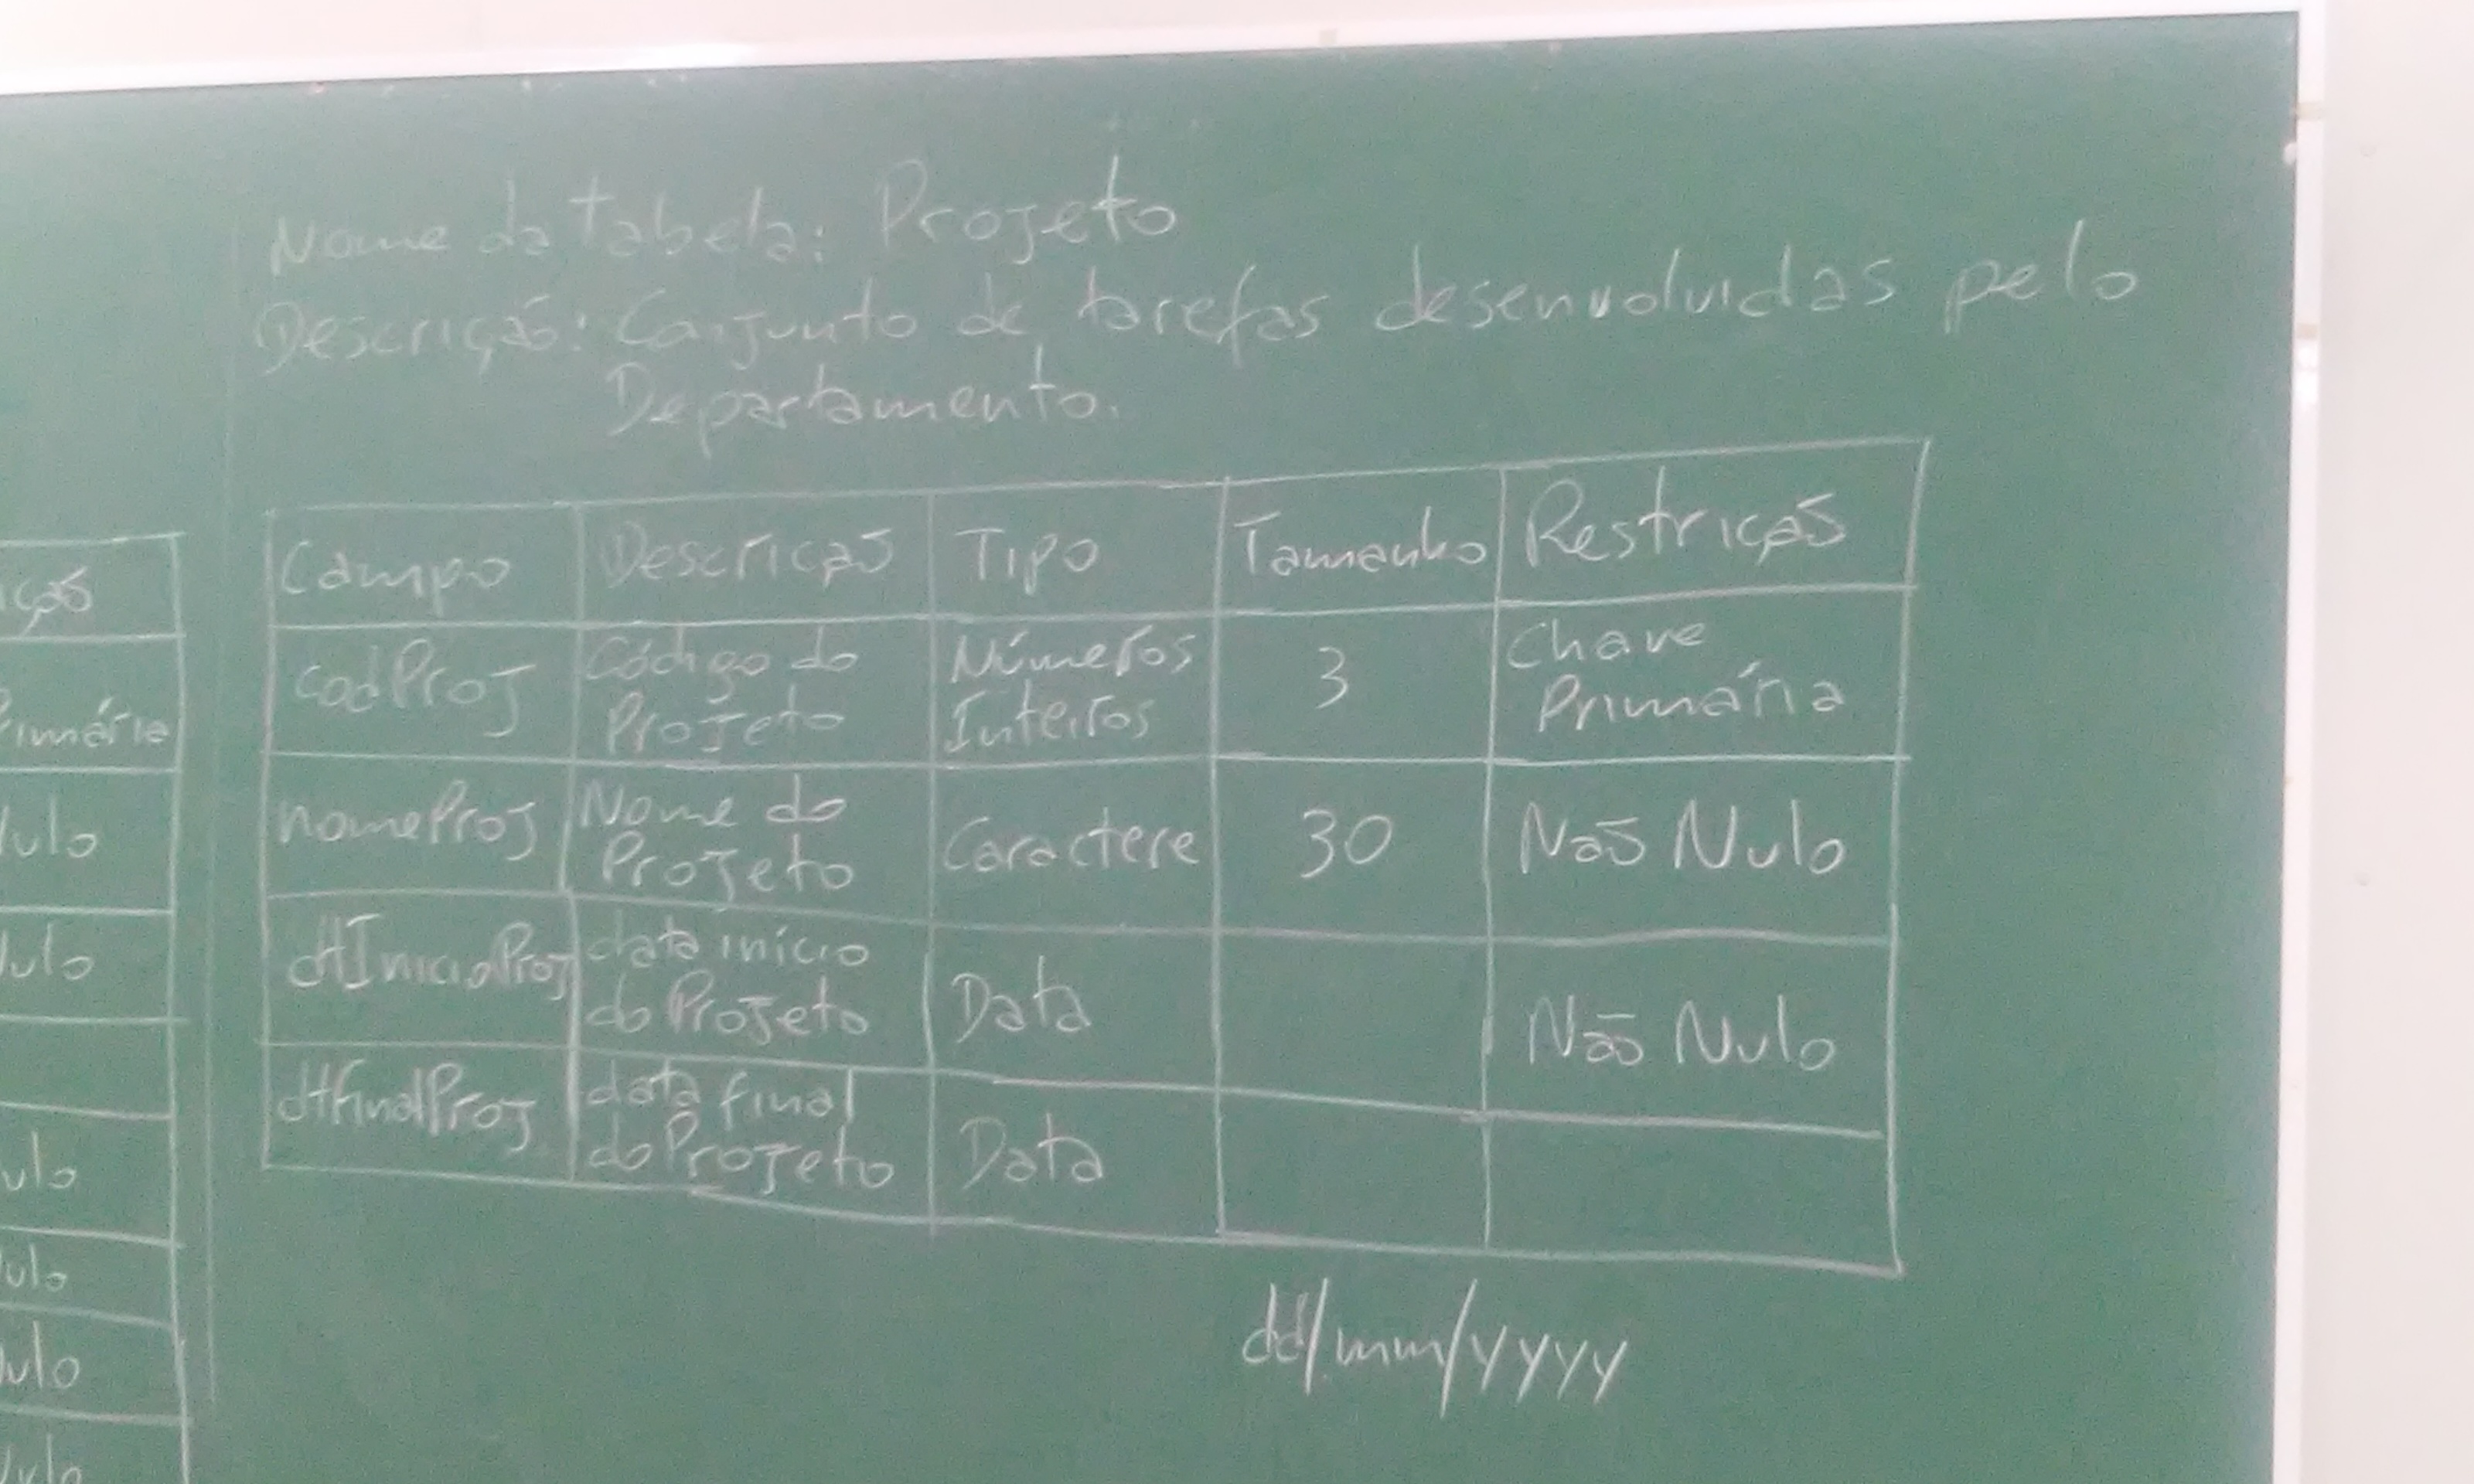 Nome da Tabela: Projeto
Descrição: Conjunto de tarefas desenvolvidas pelo
Departamento.
Campo Descrição Tipo Tamanho Restrição
codProj Código do Projeto Números Inteiros 3 Chave Primária
nomeProj Nome do Projeto Caractere 30 Não Nulo
dtInicioProj data início do Projeto Data Não Nulo
dtfinalProj data final do Projeto Data
dd/mm/yyyy
ição
Primária
Nulo
Nulo
ulo
Nulo
Nulo
Nulo